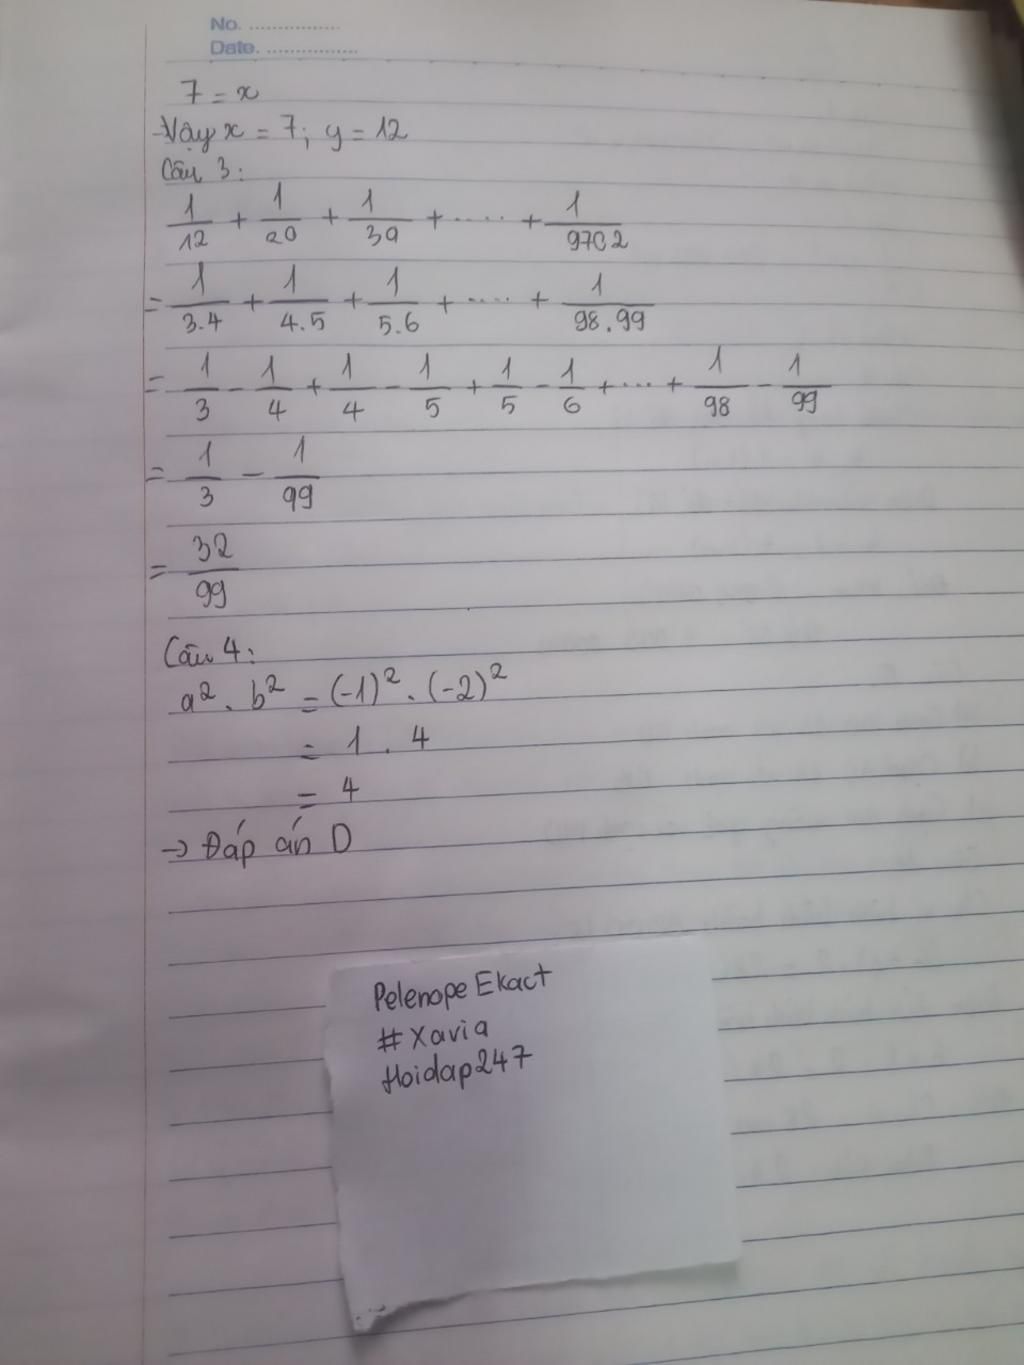 No. ................
Date. ................
7 = x
→ Vậy x = 7; y = 12
Câu 3:
1/12 + 1/20 + 1/30 + ..... + 1/9702
= 1/3.4 + 1/4.5 + 1/5.6 + ..... + 1/98.99
= 1/3 - 1/4 + 1/4 - 1/5 + 1/5 - 1/6 + ... + 1/98 - 1/99
= 1/3 - 1/99
= 32/99
Câu 4:
a² . b² = (-1)² . (-2)²
= 1 . 4
= 4
→ Đáp án D
Pelenope Ekact
#Xavia
Hoidap247